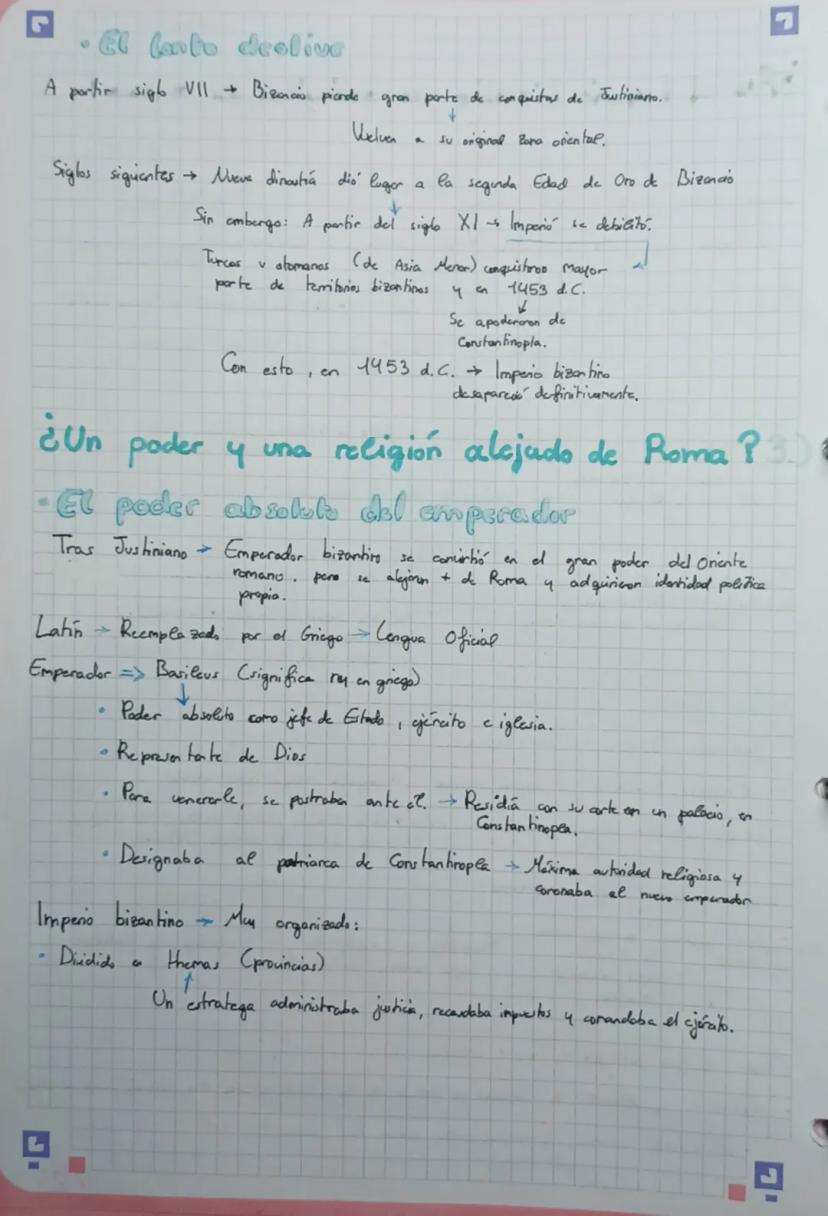 • El lento declive
A partir siglo VII → Bizancio pierde gran parte de conquistas de Justiniano.
↓
Vuelven a su original zona oriental.
Siglos siguientes → Nueva dinastía dió lugar a la segunda Edad de Oro de Bizancio
↓
Sin embargo: A partir del siglo XI → Imperio se debilitó.
Turcos y otomanos (de Asia Menor) conquistaron mayor
parte de territorios bizantinos y en 1453 d.C.
↓
Se apoderaron de
Constantinopla.
Con esto, en 1453 d.C. → Imperio bizantino
desapareció definitivamente.
¿Un poder y una religión alejado de Roma?
• El poder absoluto del emperador
Tras Justiniano → Emperador bizantino se convirtió en el gran poder del Oriente
romano, pero se alejaron + de Roma y adquirieron identidad política
propia.
Latín → Reemplazado por el Griego → Lengua Oficial
Emperador => Basileus (significa rey en griego)
↓
• Poder absoluto como jefe de Estado, ejército e iglesia.
• Representante de Dios
• Para venerarle, se postraban ante él. → Residía con su corte en un palacio, en
Constantinopla.
• Designaba al patriarca de Constantinopla → Máxima autoridad religiosa y
coronaba al nuevo emperador
Imperio bizantino → Muy organizado:
• Dividido a themas (provincias)
↑
Un estratega administraba justicia, recaudaba impuestos y comandaba el ejército.